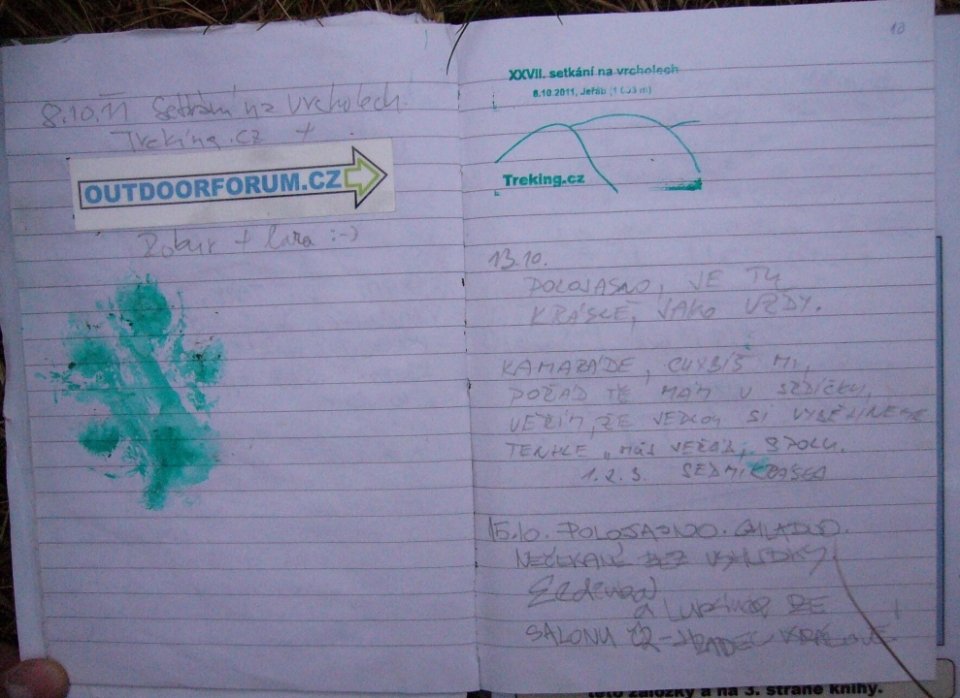 8.10.11 Setkání na vrcholech.
Treking.cz +
OUTDOORFORUM.CZ
+ :-)
10
XXVII. setkání na vrcholech
8.10.2011, Jeřáb (1 003 m)
Treking.cz
13.10.
POLOJASNO, JE TU
KRÁSNĚ, JAKO VŽDY.
KAMARÁDE, CHYBÍŠ MI,
POŘÁD TĚ MÁM V SRDÍČKU,
VĚŘÍM, ŽE JEDNOU SI VYBĚHNEME
TENHLE „NÁŠ JEŘÁB„ SPOLU.
1.2.3. SEDMIKRÁSKA
15.10. POLOJASNO. CHLADNO.
NEČEKANĚ BEZ VYHLÍDKY
a ZE
SALONU ČR - HRADEC KRÁLOVÉ
této záložky a na 3. straně knihy.